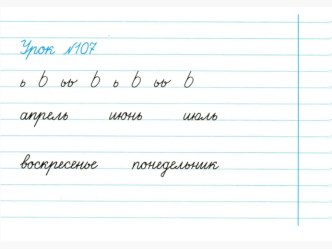 Урок №107
ь Ь ьь Ь ь Ь ьь Ь
апрель июнь июль
воскресенье понедельник